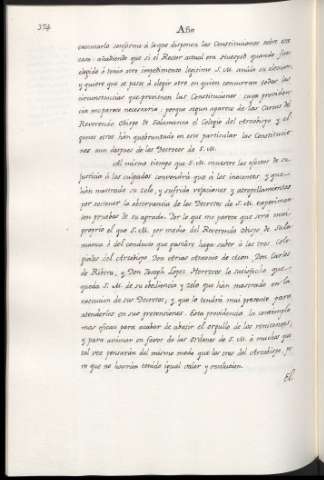 354
Año
executarla conforme à lo que disponen las Constituciones sobre este
caso: añadiendo que si el Rector actual era nuevo quando fue
elegido ò tenia otro impedimento legitimo S. M. anula su eleccion,
y quiere que se pase à elegir otro en quien concurran todas las
circunstancias que previenen las Constituciones cuya providen-
cia me parece necesaria, porque segun aparece de las Cartas del
Reverendo Obispo de Salamanca el Colegio del Arzobispo y al-
gunos otros han quebrantado en este particular las Constitucio-
nes aun despues de los Decretos de S. M.
Al mismo tiempo que S. M. muestre los efectos de su
justicia à los culpados convendrà que à los inocentes y que
han mostrado su zelo, y sufrido vejaciones y atropellamientos
por sostener la observancia de los Decretos de S. M. experimen-
ten pruebas de su agrado. Por lo que me parece que serà mui
proprio el que S. M. por medio del Reverendo Obispo de Sala-
manca ò del conducto que gustàre haga saber à los tres Cole-
giales del Arzobispo Don Don Carlos
de Ribera, y Don Joseph Lopez Herreros la satisfaccion que
queda S. M. de su obediencia y zelo que han mostrado en la
execucion de sus Decretos, y que lo tendrà mui presente para
atenderlos en sus pretensiones. Esta providencia la contemplo
mas eficaz para acabar de abatir el orgullo de los
y para animar en favor de las ordenes de S. M. à muchos que
tal vez pensaràn del mismo modo que los tres del Arzobispo, pe-
ro que no havràn tenido igual valor y resolucion.
El